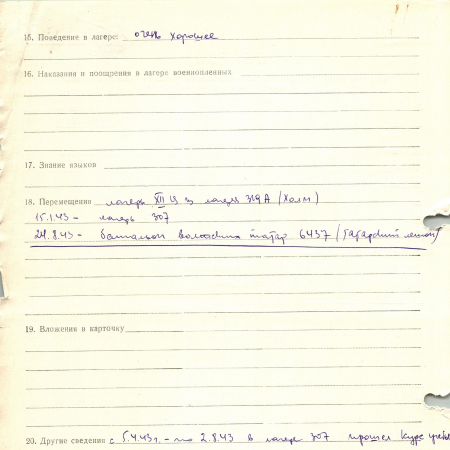 15. Поведение в лагере: очень хорошее
16. Наказания и поощрения в лагере военнопленных
17. Знание языков
18. Перемещения лагерь XII из лагеря 319 А (Холм)
15.1.43 - лагерь 307
24.8.43 - батальон волжских татар 6437
19. Вложения в карточку
20. Другие сведения с 5.4.43 г. - по 2.8.43 в лагере 307 прошел курс